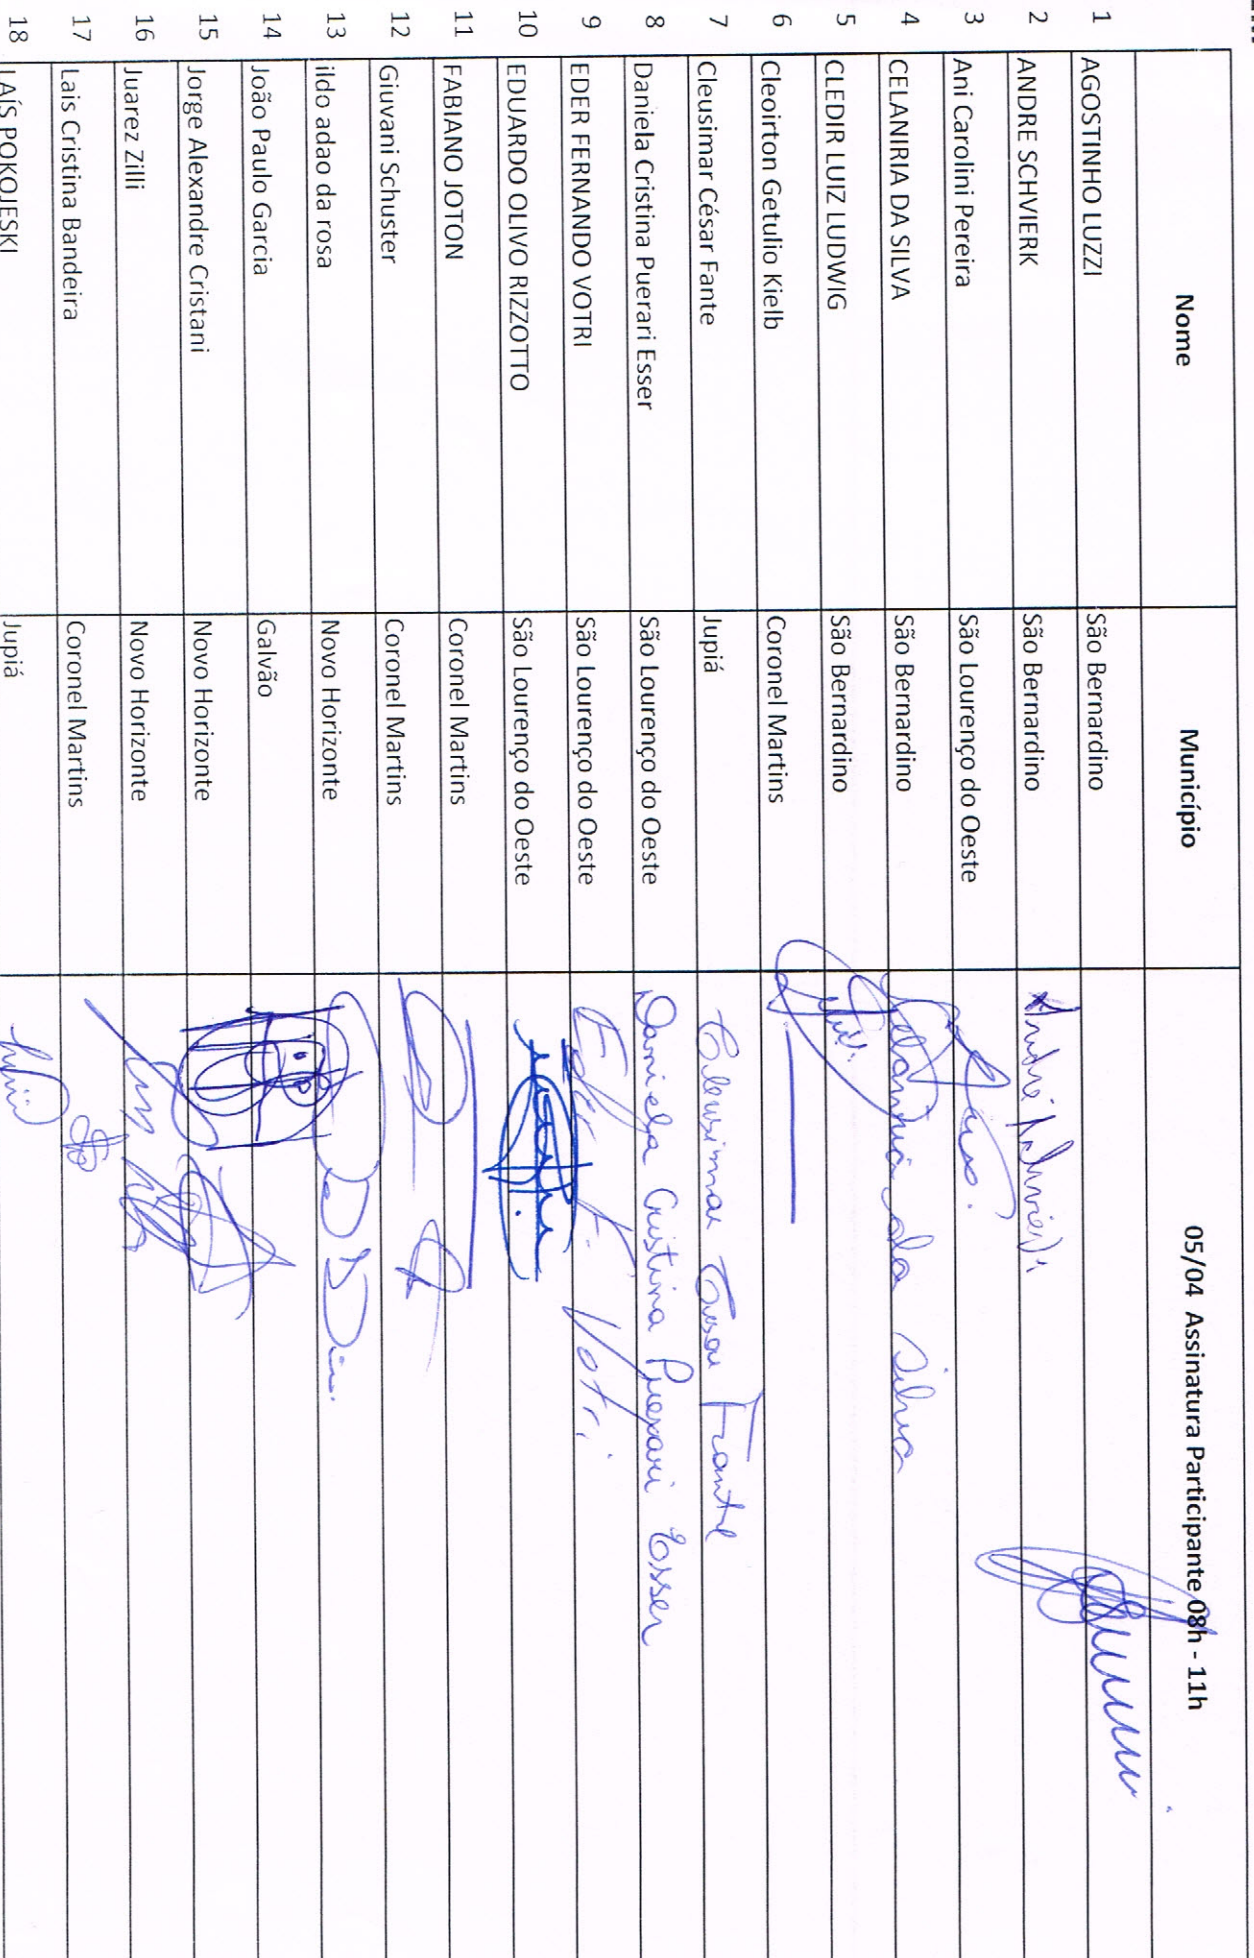 Nome Município 05/04 Assinatura Participante 08h - 11h
1 AGOSTINHO LUZZI São Bernardino
2 ANDRE SCHVIERK São Bernardino
3 Ani Carolini Pereira São Lourenço do Oeste
4 CELANIRIA DA SILVA São Bernardino Celaniria da Silva
5 CLEDIR LUIZ LUDWIG São Bernardino
6 Cleoirton Getulio Kielb Coronel Martins
7 Cleusimar César Fante Jupiá Cleusimar Cesar Fante
8 Daniela Cristina Puerari Esser São Lourenço do Oeste Daniela Cristina Puerari Esser
9 EDER FERNANDO VOTRI São Lourenço do Oeste Eder F. Votri
10 EDUARDO OLIVO RIZZOTTO São Lourenço do Oeste
11 FABIANO JOTON Coronel Martins
12 Giuvani Schuster Coronel Martins
13 ildo adao da rosa Novo Horizonte
14 João Paulo Garcia Galvão
15 Jorge Alexandre Cristani Novo Horizonte
16 Juarez Zilli Novo Horizonte
17 Lais Cristina Bandeira Coronel Martins
18 LAÍS POKOJESKI Jupiá